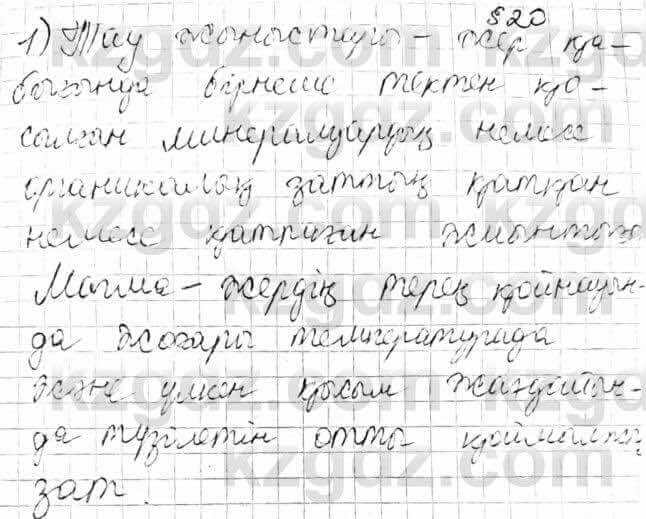 §20
1) Тау жыныстары – жер қа-
бығында бірнеше тектен қо-
салған минералдардың немесе
органикалық заттың қатқан
немесе қатпаған жиынтығы
Магма – жердің терең қойнауын-
да жоғары температурада
және үлкен қысым жағдайын-
да түзілетін отты қоймалжың
зат.
kzgdz.com